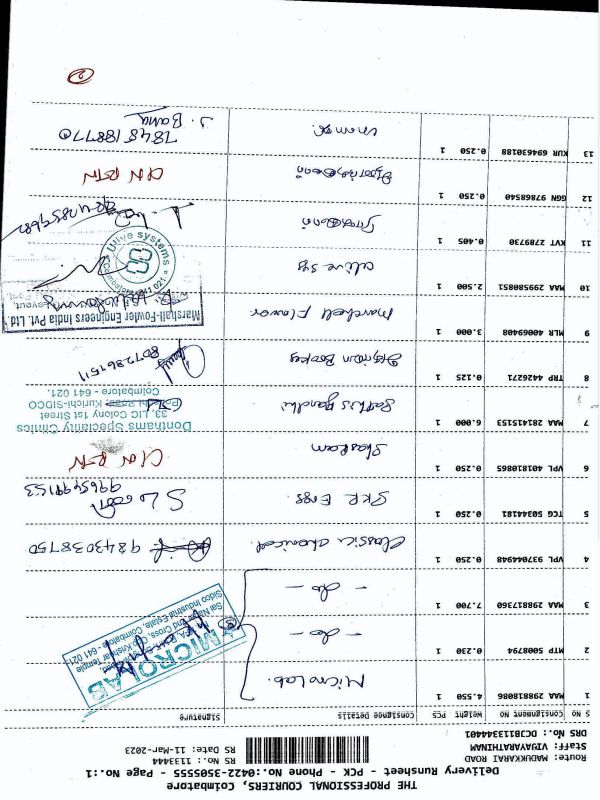 THE PROFESSIONAL COURIERS, Coimbatore
Delivery Runsheet - PCK - Phone No.:0422-3505555 - Page No.:1
Route: MADUKKARAI ROAD
Staff: VIJAYARATHINAM
DRS No.: DCJB11334401
RS No.: 1133444
RS Date: 11-Mar-2023
S NO Consignment NO Weight PCS Consignee Details Signature
1 MAA 298818086 4.550 1 Micro Lab.
MICROLAB
2nd Cross, Temple
Sidco Industrial Estate, Coimbatore - 641 021.
2 MTP 5008794 0.230 1 - do -
3 MAA 298817360 7.700 1 - do -
4 VPL 937044948 0.250 1 Classic chemical. 9843038750
5 TCG 50344181 0.250 1 SKR Engs.
6 VPL 401810865 0.250 1 CIN RTN
7 MAA 281415153 6.000 1 Sathis Gandhi
Donthams Speciality Clinics
33, LIC Colony 1st Street
Kurichi-SIDCO
Coimbatore - 641 021.
8 TRP 4426271 0.125 1
9 MLR 40069408 3.000 1 Marshell Flower
Marshall-Fowler Engineers India Pvt. Ltd.
10 MAA 299580851 2.500 1 Olive Sys
Olive Systems
Coimbatore-641 021.
11 KVT 2789730 0.405 1
12 GGN 97868540 0.250 1 CIN RTN
13 KUR 694630188 0.250 1 7845188770
J. Bama
2